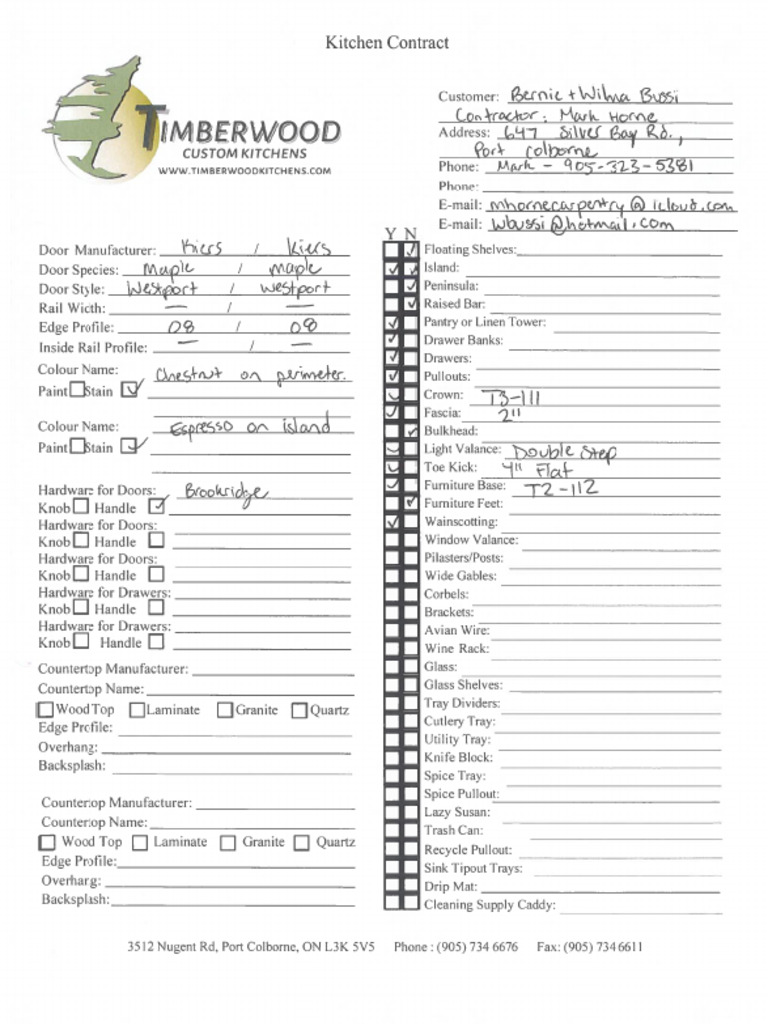 Kitchen Contract
TIMBERWOOD
CUSTOM KITCHENS
WWW.TIMBERWOODKITCHENS.COM
Customer: Bernie + Wilma Bussi
Contractor: Mark Horne
Address: 647 Silver Bay Rd.,
Port Colborne
Phone: Mark - 905-323-5381
Phone:
E-mail: mhornecarpentry@icloud.com
E-mail: wbussi@hotmail.com
Door Manufacturer: Kiers / Kiers
Door Species: Maple / maple
Door Style: Westport / westport
Rail Width: — / —
Edge Profile: 08 / 08
Inside Rail Profile: — / —
Colour Name: Chestnut on perimeter.
Paint Stain ✓
Colour Name: Espresso on island
Paint Stain ✓
Hardware for Doors: Brookridge
Knob Handle ✓
Hardware for Doors:
Knob Handle
Hardware for Doors:
Knob Handle
Hardware for Drawers:
Knob Handle
Hardware for Drawers:
Knob Handle
Countertop Manufacturer:
Countertop Name:
Wood Top Laminate Granite Quartz
Edge Profile:
Overhang:
Backsplash:
Countertop Manufacturer:
Countertop Name:
Wood Top Laminate Granite Quartz
Edge Profile:
Overhang:
Backsplash:
Y N
Floating Shelves:
Island:
Peninsula:
Raised Bar:
Pantry or Linen Tower:
Drawer Banks:
Drawers:
Pullouts:
Crown: T3-111
Fascia: 2"
Bulkhead:
Light Valance: Double Step
Toe Kick: 4" Flat
Furniture Base: T2-112
Furniture Feet:
Wainscotting:
Window Valance:
Pilasters/Posts:
Wide Gables:
Corbels:
Brackets:
Avian Wire:
Wine Rack:
Glass:
Glass Shelves:
Tray Dividers:
Cutlery Tray:
Utility Tray:
Knife Block:
Spice Tray:
Spice Pullout:
Lazy Susan:
Trash Can:
Recycle Pullout:
Sink Tipout Trays:
Drip Mat:
Cleaning Supply Caddy:
3512 Nugent Rd, Port Colborne, ON L3K 5V5 Phone : (905) 734 6676 Fax: (905) 734 6611